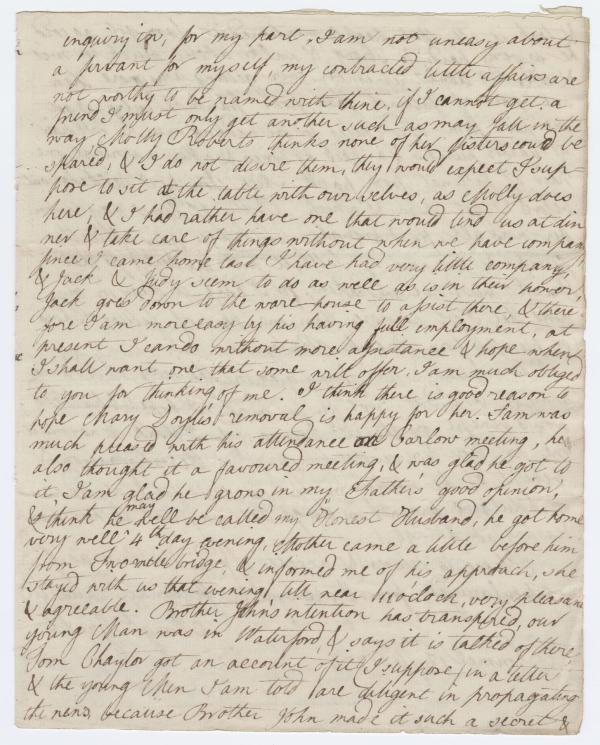 enquiry in, for my part, I am not uneasy about
a servant for myself, my contracted little affairs are
not worthy to be named with thine, if I cannot get a
friend I must only get another such as may fall in the
way Molly Roberts thinks none of her sisters could be
spared, & I do not disire them, they would expect I sup-
pose to sit at the table with ourselves, as Molly does
here, & I had rather have one that would tend us at din
ner & take care of things without when we have company
since I came home last I have had very little company,
& Jack & Judy seem to do as well as is in their power,
Jack goes down to the ware-house to assist there, & there
fore I am more easy by his having full employment, at
present I can do without more assistance & hope when
I shall want one that some will offer, I am much obliged
to you for thinking of me. I think there is good reason to
hope Mary Doyle's removal is happy for her. Sam was
much pleased with his attendance on Carlow meeting, he
also thought it a favoured meeting, & was glad he got to
it, I am glad he grows in my Father's good opinion,
& think he may well be called my Honest Husband, he got home
very well 4th day evening, Mother came a little before him
from Twomilebridge, & informed me of his approach, she
stay'd with us that evening till near 11 o'clock, very pleasant
& agreeable. Brother John's intention has transpired, our
young Man was in Waterford, & says it is talked of there
Tom Chaytor got an account of it (I suppose) in a letter
& the young Men I am told are diligent in propagating
the news, because Brother John made it such a secret &